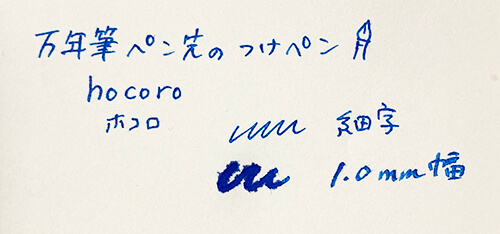 万年筆ペン先のつけペン
hocoro
ホコロ
細字
1.0mm幅